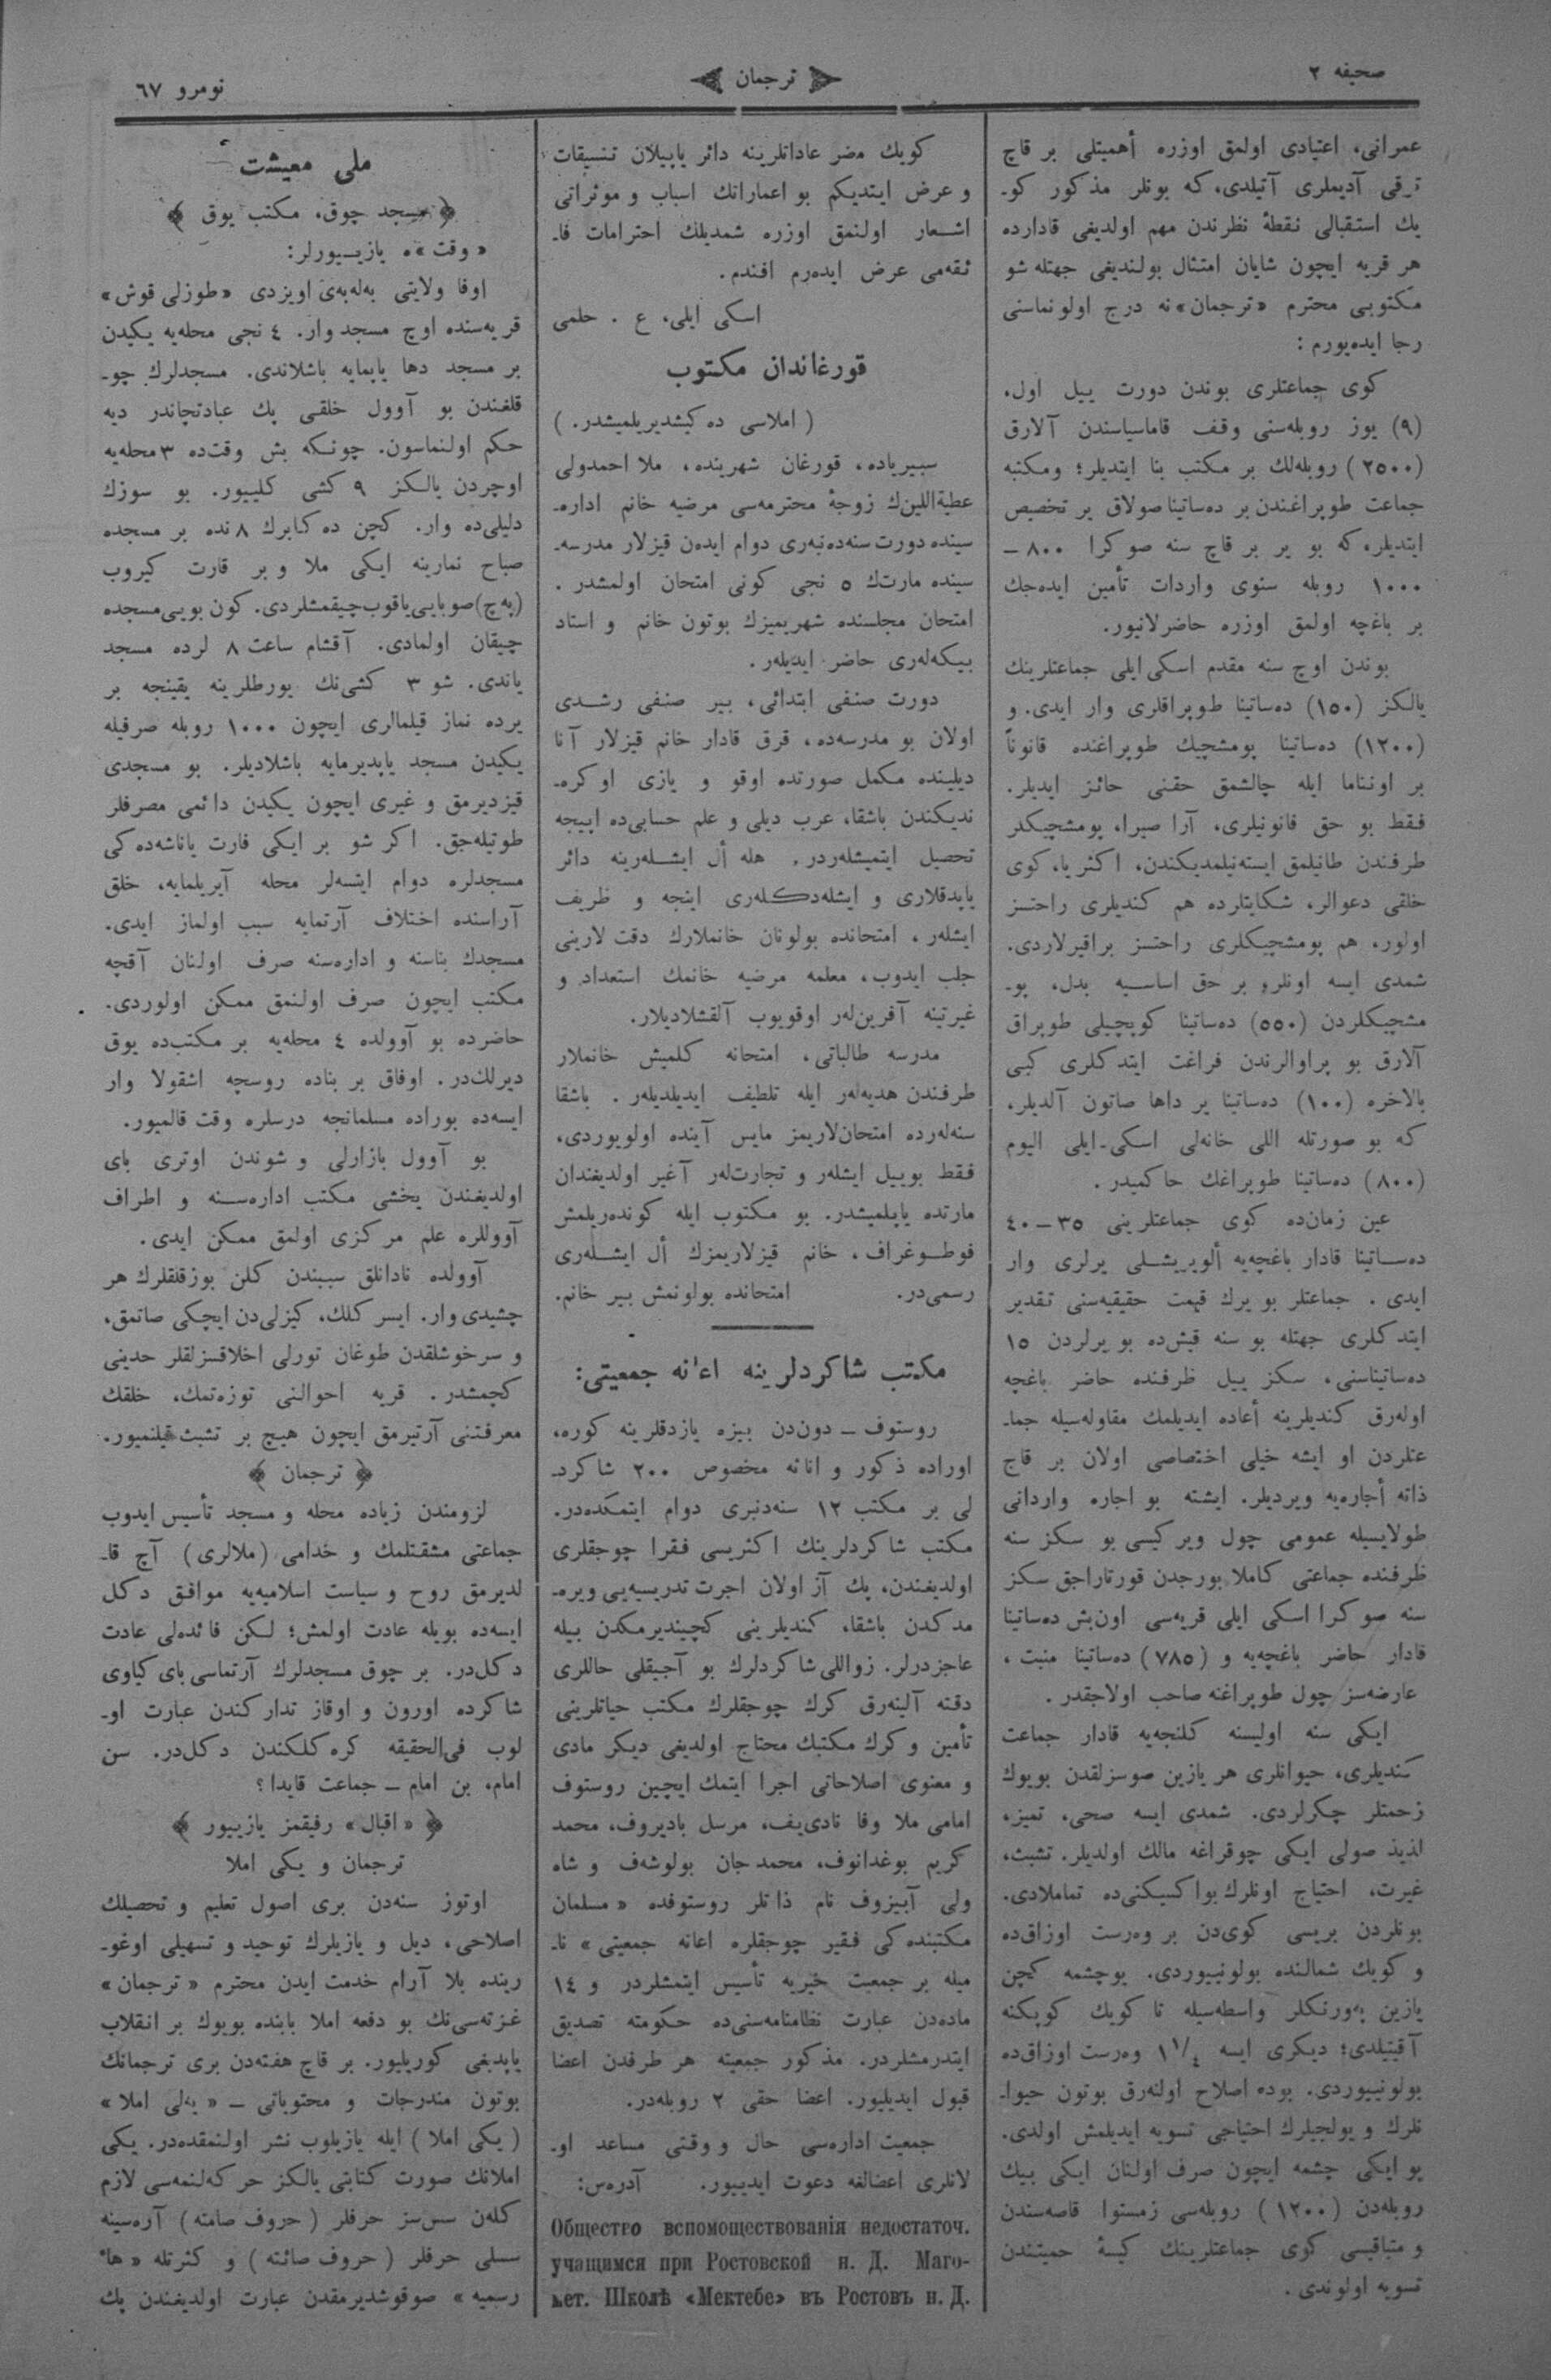 صحیفه ٢
ترجمان
نومرو ٦٧
عمرانی، اعتیادی اولمق اوزره أهمیتلی بر قاچ
ترقی آدیملری آتیلدی، که بونلر مذکور کو-
یك استقبالی نقطهٔ نظرندن مهم اولدیغی قادارده
هر قریه ایچون شایان امتثال بولندیغی جهتله شو
مکتوبی محترم «ترجمان»نه درج اولونماسنی
رجا ایده‌یورم :
کوی جماعتلری بوندن دورت ییل اول،
(٩) یوز روبله‌سنی وقف قاماسیاسندن آلارق
(٢٥٠٠) روبله‌لك بر مکتب بنا ایتدیلر؛ ومکتبه
جماعت طوپراغندن بر ده‌ساتینا صولاق یر تخصیص
ایتدیلر، که بو یر بر قاچ سنه صوکرا ٨٠٠ —
١٠٠٠ روبله سنوی واردات تأمین ایده‌جك
بر باغچه اولمق اوزره حاضرلانیور.
بوندن اوچ سنه مقدم اسکی ایلی جماعتلرینك
یالکز (١٥٠) ده‌ساتینا طوپراقلری وار ایدی. و
(١٢٠٠) ده‌ساتینا پومشچیك طوپراغنده قانوناً
بر اونناما ایله چالشمق حقنی حائز ایدیلر.
فقط بو حق قانونیلری، آرا صیرا، پومشچیکلر
طرفندن طانیلمق ایسته‌نیلمدیکندن، اکثریا، کوی
خلقی دعوالر، شکایتلرده هم کندیلری راحتسز
اولور، هم پومشچیکلری راحتسز براقیرلاردی.
شمدی ایسه اونلر، بر حق اساسیه بدل، پو-
مشچیکلردن (٥٥٠) ده‌ساتینا کوپچیلی طوپراق
آلارق بو پراوالرندن فراغت ایتدکلری کبی
بالاخره (١٠٠) ده‌ساتینا یر داها صاتون آلدیلر،
که بو صورتله اللی خانه‌لی اسکی-ایلی الیوم
(٨٠٠) ده‌ساتینا طوپراغك حاکمیدر .
عین زمان‌ده کوی جماعتلرینی ٣٥—٤٠
ده‌ساتینا قادار باغچه‌یه ألویریشلی یرلری وار
ایدی . جماعتلر بو یرك قیمت حقیقیه‌سنی تقدیر
ایتدکلری جهتله بو سنه قیش‌ده بو یرلردن ١٥
ده‌ساتیناسنی، سکز ییل ظرفنده حاضر باغچه
اوله‌رق کندیلرینه أعاده ایدیلمك مقاوله‌سیله جما-
عتلردن او ایشه خیلی اختصاصی اولان بر قاچ
ذاته أجاره‌یه ویردیلر. ایشته بو اجاره وارداتی
طولایسیله عمومی چول ویرکیسی بو سکز سنه
ظرفنده جماعتی کاملا بورجدن قورتاراجق سکز
سنه صوکرا اسکی ایلی قریه‌سی اون‌بش ده‌ساتینا
قادار حاضر باغچه‌یه و (٧٨٥) ده‌ساتینا منبت ،
عارضه‌سز چول طوپراغنه صاحب اولاجقدر .
ایکی سنه اولیسنه کلنجه‌یه قادار جماعت
کندیلری، حیوانلری هر یازین صوسزلقدن بویوك
زحمتلر چکرلردی. شمدی ایسه صحی، تمیز،
لذیذ صولی ایکی چوقراغه مالك اولدیلر. تشبث،
غیرت، احتیاج اونلرك بو اکسیکنی‌ده تماملادی.
بونلردن بریسی کوی‌دن بر وه‌رست اوزاق‌ده
و کویك شمالنده بولونییوردی. بو چشمه کچن
یازین واسطه‌سیله تا کویك کوپکنه
آقیتیلدی؛ دیکری ایسه ١ ١/٤ وه‌رست اوزاق‌ده
بولونییوردی. بوده اصلاح اولنه‌رق بوتون حیوا-
نلرك و یولجیلرك احتیاجی تسویه ایدیلمش اولدی.
بو ایکی چشمه ایچون صرف اولنان ایکی بیك
روبله‌دن (١٢٠٠) روبله‌سی زمستوا قاصه‌سندن
و متباقیسی کوی جماعتلرینك کیسهٔ حمیتندن
تسویه اولوندی .
کویك مضر عاداتلرینه دائر یاپیلان تنسیقات
و عرض ایتدیکم بو اعماراتك اسباب و موثراتی
اشعار اولنمق اوزره شمدیلك احترامات فا-
ئقه‌می عرض ایده‌رم افندم.
اسکی ایلی، ع . حلمی
قورغاندان مکتوب
( املاسی ده کیشدیریلمیشدر. )
سیبریاده، قورغان شهرینده، ملا احمدولی
عطیةاللین‌ك زوجهٔ محترمه‌سی مرضیه خانم اداره-
سینده دورت سنه‌ده‌نبه‌ری دوام ایده‌ن قیزلار مدرسه-
سینده مارتك ٥ نجی کونی امتحان اولمشدر .
امتحان مجلسنده شهریمیزك بوتون خانم و استاد
بیکه‌له‌ری حاضر ایدیله‌ر .
دورت صنفی ابتدائی، بیر صنفی رشدی
اولان بو مدرسه‌ده، قرق قادار خانم قیزلار آنا
دیلینده مکمل صورتده اوقو و یازی اوکره-
ندیکندن باشقا، عرب دیلی و علم حسابی‌ده اییجه
تحصیل ایتمیشله‌ردر. هله أل ایشله‌رینه دائر
یاپدقلاری و ایشله‌دکله‌ری اینجه و ظریف
ایشله‌ر ، امتحانده بولونان خانملارك دقت لارینی
جلب ایدوب، معلمه مرضیه خانمك استعداد و
غیرتینه آفرین‌له‌ر اوقویوب آلقشلادیلار.
مدرسه طالباتی، امتحانه کلمیش خانملار
طرفندن هدیه‌له‌ر ایله تلطیف ایدیلدیله‌ر . باشقا
سنه‌له‌رده امتحان‌لاریمز مایس آینده اولویوردی،
فقط بوییل ایشله‌ر و تجارت‌له‌ر آغیر اولدیغندان
مارتده یاپلمیشدر. بو مکتوب ایله کونده‌ریلمش
فوطوغراف، خانم قیزلاریمزك أل ایشله‌ری
رسمی‌در. امتحانده بولونمش بیر خانم.
مکتب شاکردلرینه اعانه جمعیتی:
روستوف — دون‌دن بیزه یازدقلرینه کوره،
اوراده ذکور و اناثه مخصوص ٢٠٠ شاکرد-
لی بر مکتب ١٢ سنه‌دنبری دوام ایتمکده‌در.
مکتب شاکردلرینك اکثریسی فقرا چوجقلری
اولدیغندن، پك آز اولان اجرت تدریسیه‌یی ویره-
مدکدن باشقا، کندیلرینی کچیندیرمکدن بیله
عاجزدرلر. زواللی شاکردلرك بو آجیقلی حاللری
دقته آلینه‌رق کرك چوجقلرك مکتب حیاتلرینی
تأمین و کرك مکتبك محتاج اولدیغی دیکر مادی
و معنوی اصلاحاتی اجرا ایتمك ایچین روستوف
امامی ملا وفا نادی‌یف، مرسل بادیروف، محمد
کریم بوغدانوف، محمد جان بولوشه‌ف و شاه
ولی آبیزوف نام ذاتلر روستوفده «مسلمان
مکتبنده کی فقیر چوجقلره اعانه جمعیتی» نا-
میله بر جمعیت خیریه تأسیس ایتمشلردر و ١٤
ماده‌دن عبارت نظامنامه‌سنی‌ده حکومته تصدیق
ایتدرمشلردر. مذکور جمعیته هر طرفدن اعضا
قبول ایدیلیور. اعضا حقی ٢ روبله‌در.
جمعیت اداره‌سی حال و وقتی مساعد او-
لانلری اعضالغه دعوت ایدییور. آدره‌س:
Общество вспомоществованія недостаточ.
учащимся при Ростовской н. Д. Маго-
мет. Школѣ «Мектебе» въ Ростовъ н. Д.
ملی معیشت
﴿ مسجد چوق، مکتب یوق ﴾
«وقت»ه یازیییورلر:
اوفا ولایتی به‌له‌به‌ی اویزدی «طوزلی قوش»
قریه‌سنده اوچ مسجد وار. ٤ نجی محله‌یه یکیدن
بر مسجد دها یاپمایه باشلاندی. مسجدلرك چو-
قلغندن بو آوول خلقی پك عبادتچاندر دیه
حکم اولنماسون. چونکه بش وقت‌ده ٣ محله‌یه
اوچردن یالکز ٩ کشی کلییور. بو سوزك
دلیلی‌ده وار. کچن ده کابرك ٨ نده بر مسجده
صباح نمازینه ایکی ملا و بر قارت کیروب
(په‌چ) صوبایی یاقوب چیقمشلردی. کون بویی مسجده
چیقان اولمادی. آقشام ساعت ٨ لرده مسجد
یاندی. شو ٣ کشی‌نك یورطلرینه یقینجه بر
یرده نماز قیلمالری ایچون ١٠٠٠ روبله صرفیله
یکیدن مسجد یاپدیرمایه باشلادیلر. بو مسجدی
قیزدیرمق و غیری ایچون یکیدن دائمی مصرفلر
طوتیله‌جق. اکر شو بر ایکی قارت یاناشه‌ده کی
مسجدلره دوام ایتسه‌لر محله آیریلمایه، خلق
آراسنده اختلاف آرتمایه سبب اولماز ایدی.
مسجدك بناسنه و اداره‌سنه صرف اولنان آقچه
مکتب ایچون صرف اولنمق ممکن اولوردی.
حاضرده بو آوولده ٤ محله‌یه بر مکتب‌ده یوق
دیرلك‌در. اوفاق بر بناده روسچه اشقولا وار
ایسه‌ده بوراده مسلمانجه درسلره وقت قالمیور.
بو آوول بازارلی و شوندن اوتری بای
اولدیغندن یخشی مکتب اداره‌سنه و اطراف
آووللره علم مرکزی اولمق ممکن ایدی.
آوولده نادانلق سببندن کلن بوزقلقلرك هر
چشیدی وار. ایسرکلك، کیزلی‌دن ایچکی صاتمق،
و سرخوشلقدن طوغان تورلی اخلاقسزلقلر حدینی
کچمشدر. قریه احوالنی توزه‌تمك، خلقك
معرفتنی آرتیرمق ایچون هیچ بر تشبث قیلنمیور.
﴿ ترجمان ﴾
لزومندن زیاده محله و مسجد تأسیس ایدوب
جماعتی مشقتلمك و خدامی (ملالری) آچ قا-
لدیرمق روح و سیاست اسلامیه‌یه موافق دکل
ایسه‌ده بویله عادت اولمش؛ لکن فائده‌لی عادت
دکل‌در. بر چوق مسجدلرك آرتماسی بای کیاوی
شاکرده اورون و اوقاز تدارکندن عبارت او-
لوب فی‌الحقیقه کره کلکندن دکل‌در. سن
امام، بن امام — جماعت قایدا؟
﴿ «اقبال» رفیقمز یازییور ﴾
ترجمان و یکی املا
اوتوز سنه‌دن بری اصول تعلیم و تحصیلك
اصلاحی، دیل و یازیلرك توحید و تسهیلی اوغو-
رینده بلا آرام خدمت ایدن محترم «ترجمان»
غزته‌سی‌نك بو دفعه املا بابنده بویوك بر انقلاب
یاپدیغی کوریلیور. بر قاچ هفته‌دن بری ترجمانك
بوتون مندرجات و محتویاتی — « املا»
(یکی املا) ایله یازیلوب نشر اولنمقده‌در. یکی
املانك صورت کتابتی یالکز حرکه‌لنمه‌سی لازم
کله‌ن سس‌سز حرفلر (حروف صامته) آره‌سینه
سسلی حرفلر (حروف صائته) و کثرتله «هاء
رسمیه» صوقوشدیرمقدن عبارت اولدیغندن پك